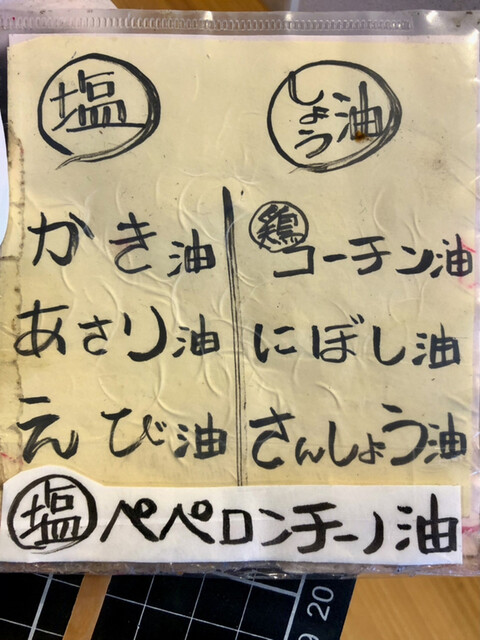 塩
かき油
あさり油
えび油
しょう油
鶏コーチン油
にぼし油
さんしょう油
塩ペペロンチーノ油
20